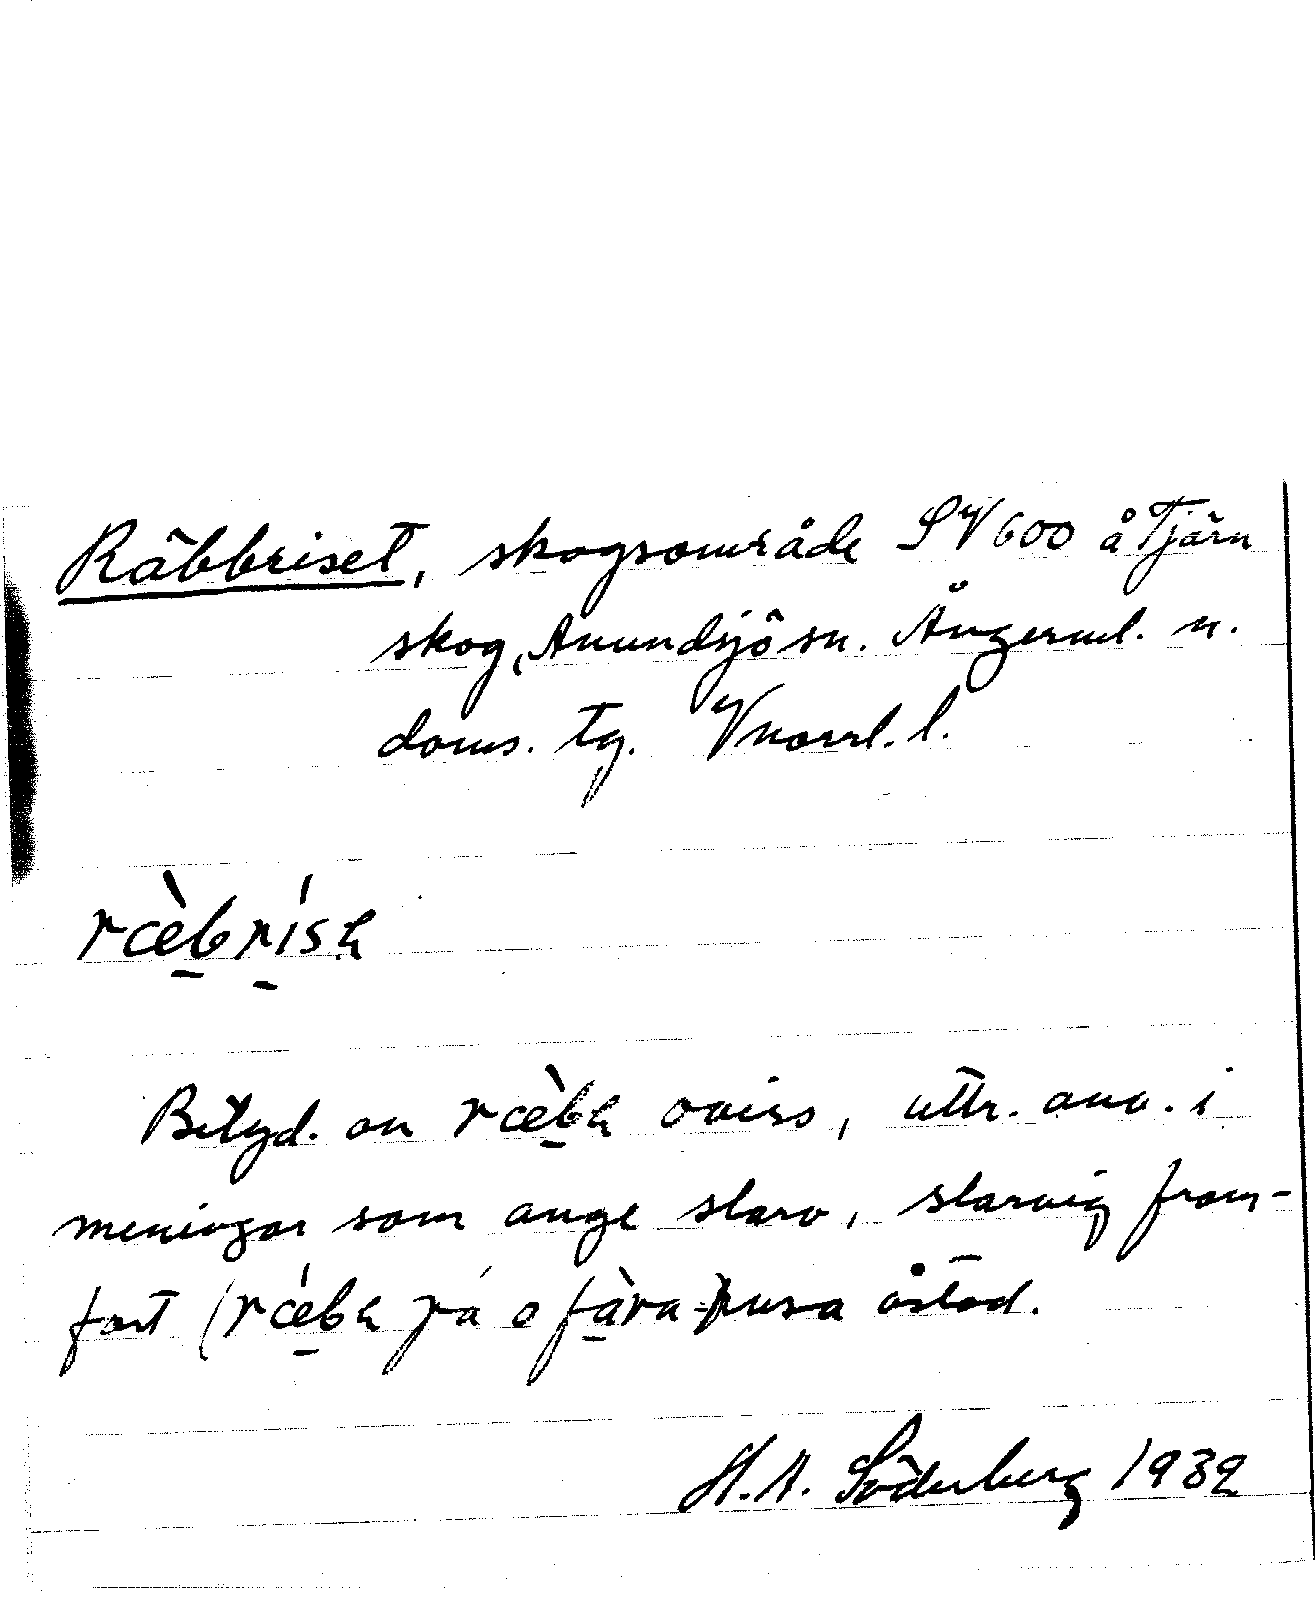 Räbbriset, skogsområde SV 600 å Tjärn
skog, Anundsjö sn. Ångerml. n.
doms. tg. Vnorrl. l.
ræ̀brísɐ
Betyd. av ræ̀bɐ oviss, uttr. anv. i
meningar som ange slarv, slarvig fram-
fart (ræ̀bɐ på o fàra
H. A. Söderberg 1932